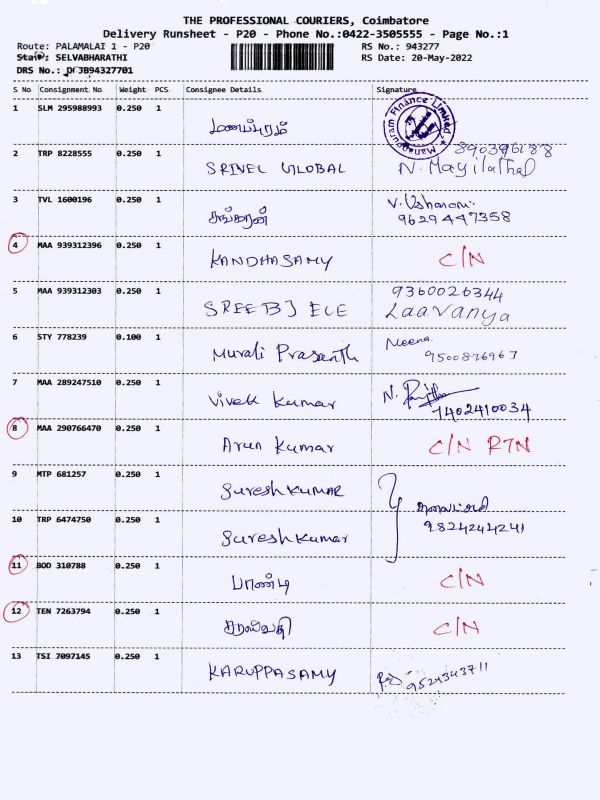 THE PROFESSIONAL COURIERS, Coimbatore
Delivery Runsheet - P20 - Phone No.:0422-3505555 - Page No.:1
Route: PALAMALAI 1 - P20 RS No.: 943277
SELVABHARATHI RS Date: 20-May-2022
DRS No.: 94327701
S No Consignment No Weight PCS Consignee Details Signature
1 SLM 295988993 0.250 1 மணப்புரம் Manappuram Finance Limited
2 TRP 8228555 0.250 1 SRIVEL GLOBAL N. Mayilathal
3 TVL 1600196 0.250 1 சங்கரன் V. Usharani 9629447358
4 MAA 939312396 0.250 1 KANDHASAMY C/N
5 MAA 939312303 0.250 1 SREE BJ ELE 9360026344 Laavanya
6 STY 778239 0.100 1 Murali Prasanth Meena 9500876963
7 MAA 289247510 0.250 1 Vivek Kumar N. 7402410034
8 MAA 290766470 0.250 1 Arun Kumar C/N RTN
9 MTP 681257 0.250 1 Suresh KUMAR
10 TRP 6474750 0.250 1 Suresh Kumar 9824244241
11 BOD 310788 0.250 1 பாண்டி C/N
12 TEN 7263794 0.250 1 C/N
13 TSI 7097145 0.250 1 KARUPPASAMY 9524343711